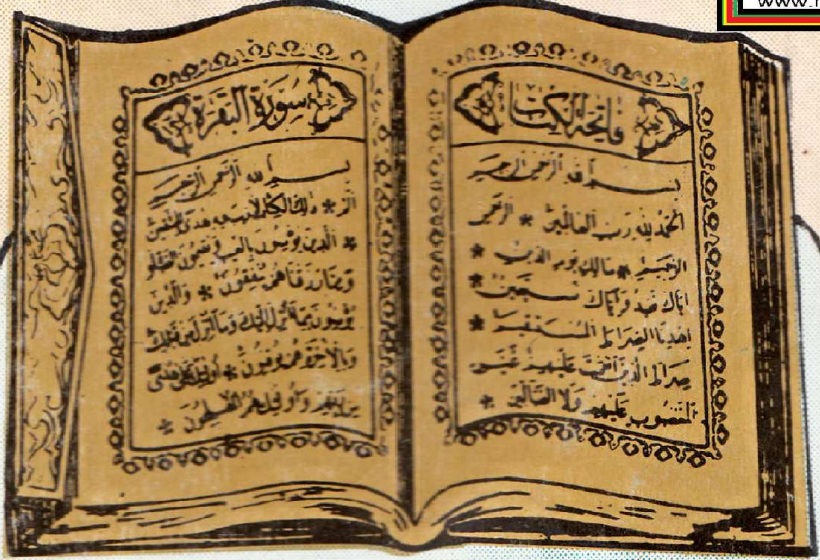 www.
فاتحة الكتاب
بسم الله الرحمن الرحيم
الحمد لله رب العالمين * الرحمن
الرحيم * مالك يوم الدين *
اياك نعبد واياك نستعين *
اهدنا الصراط المستقيم *
صراط الذين انعمت عليهم غير
المغضوب عليهم ولا الضالين *
سورة البقرة
بسم الله الرحمن الرحيم
الم * ذلك الكتاب لا ريب فيه هدى للمتقين
* الذين يؤمنون بالغيب ويقيمون الصلوة
ومما رزقناهم ينفقون * والذين
يؤمنون بما أنزل إليك وما أنزل من قبلك
وبالآخرة هم يوقنون * أولئك على هدى
من ربهم وأولئك هم المفلحون *